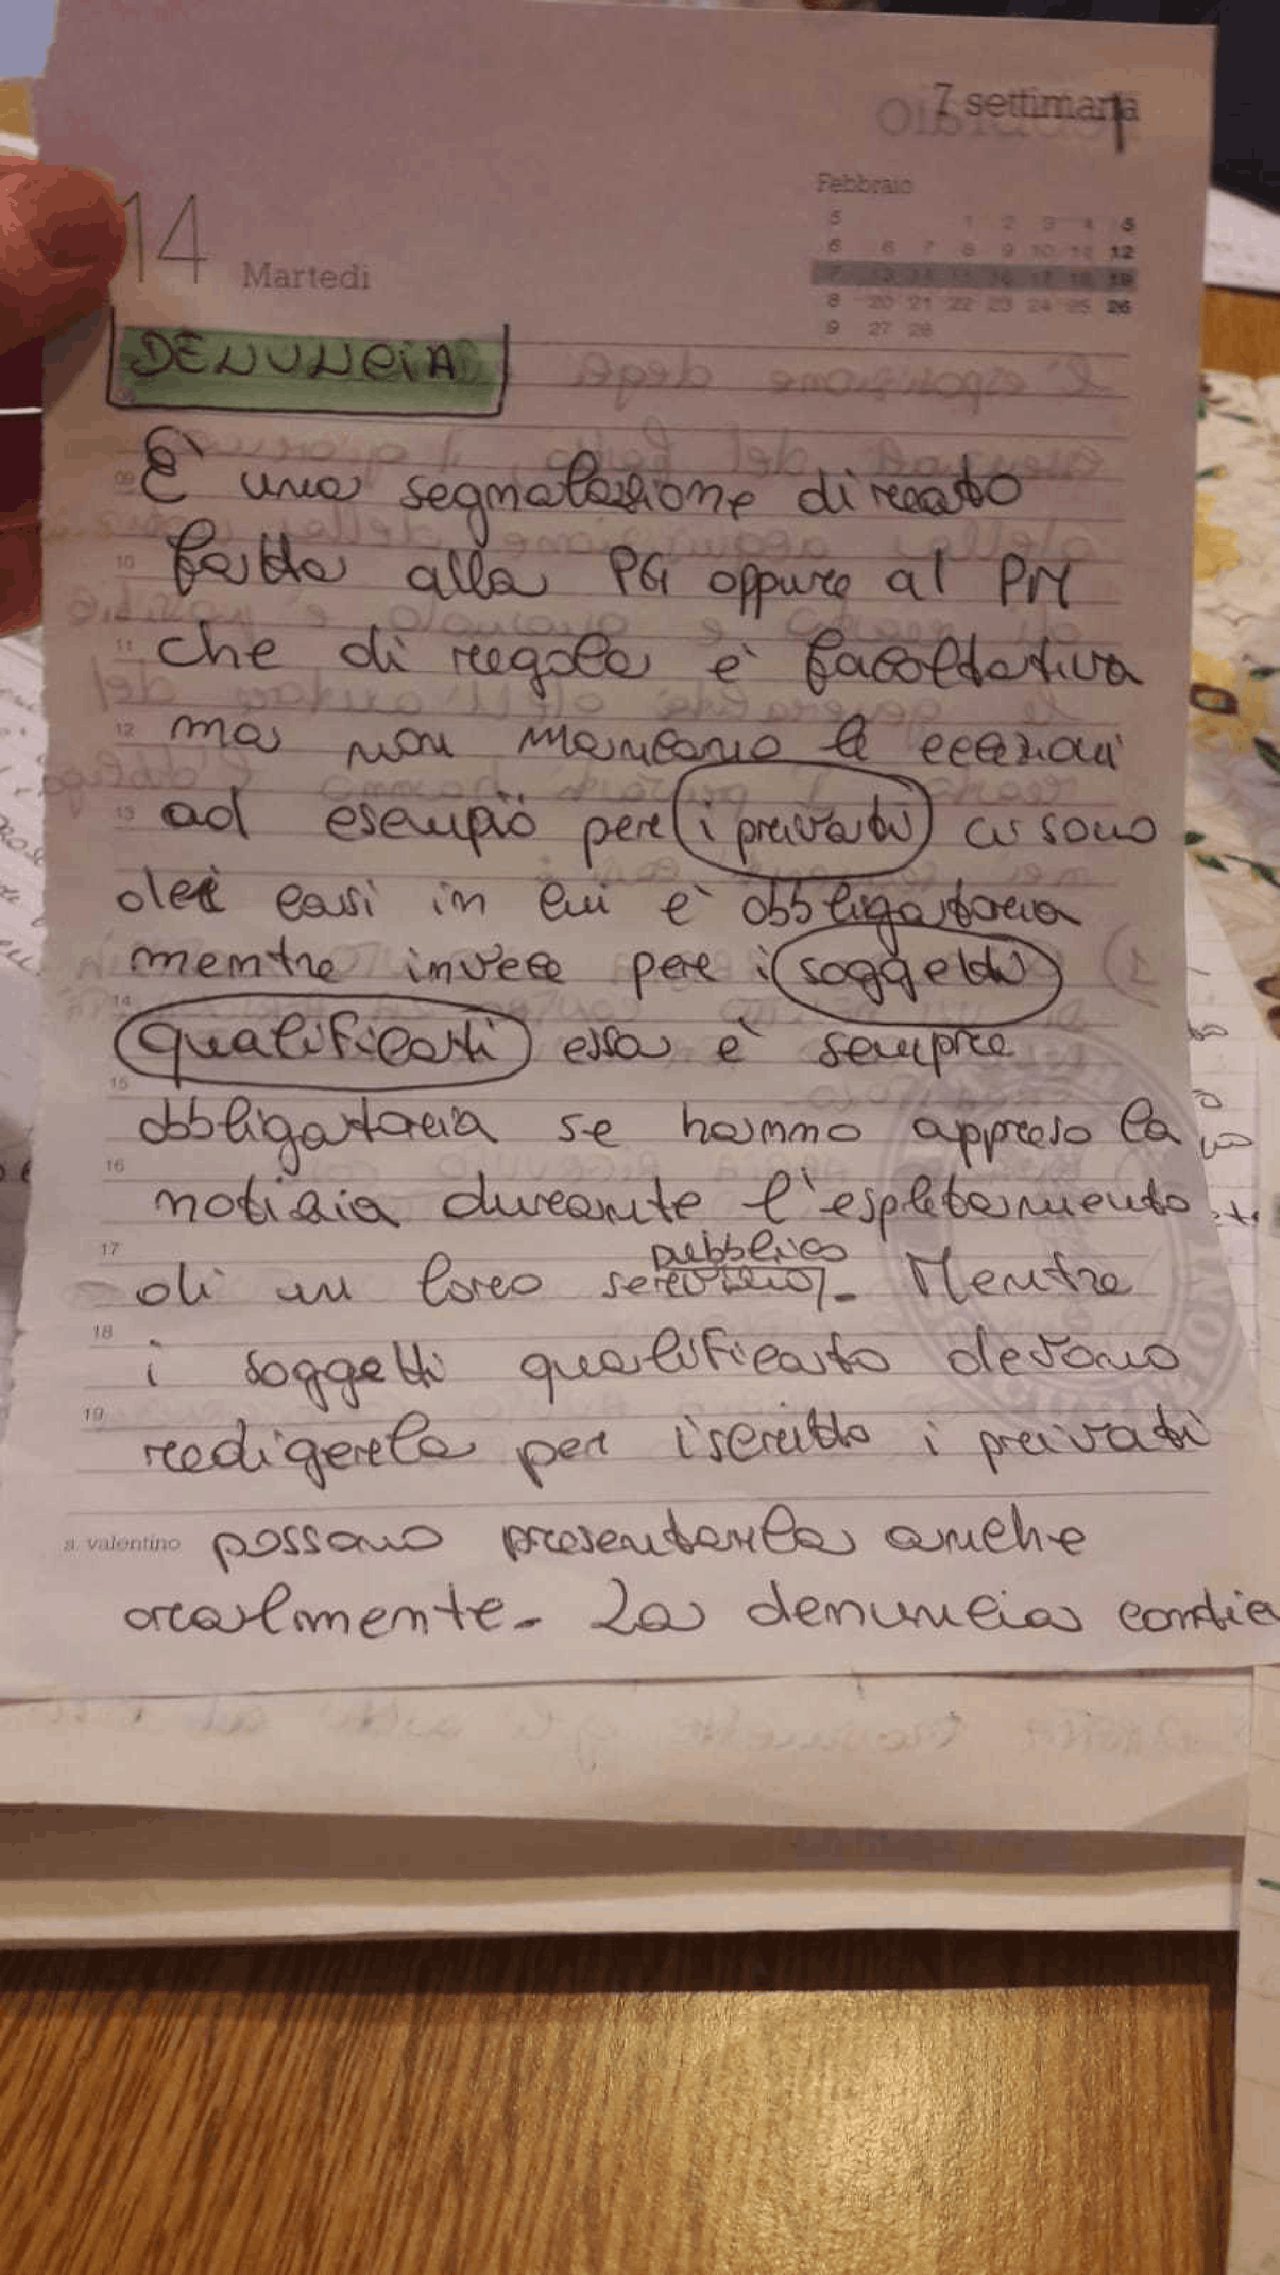 7 settimana
Febbraio
5 1 2 3 4 5
6 6 7 8 9 10 11 12
7 13 14 15 16 17 18 19
8 20 21 22 23 24 25 26
9 27 28
14 Martedì
DENUNCIA
È una segnalazione di reato
fatta alla PG oppure al PM
che di regola è facoltativa
ma non mancano le eccezioni
ad esempio per i privati ci sono
dei casi in cui è obbligatoria
mentre invece per i soggetti
qualificati essa è sempre
obbligatoria se hanno appreso la
notizia durante l'espletamento
pubblico
di un loro servizio. Mentre
i soggetti qualificato devono
redigerla per iscritto i privati
s. valentino possono presentarla anche
oralmente. La denuncia contie